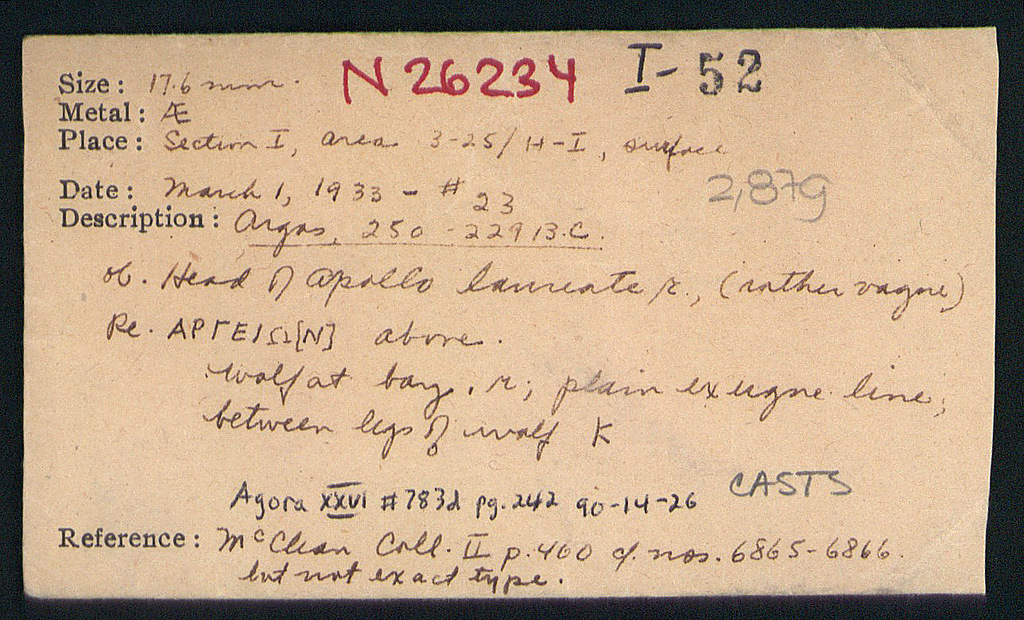 N 26234 I- 52
Size: 17.6 mm.
Metal: Æ
Place: Section I, area 3-25/H-I, surface
Date: March 1, 1933 - # 23
2,87g
Description: Argos, 250-229 B.C.
ob. Head of Apollo laureate r., (rather vague)
Re. ΑΡΓΕΙΩ[Ν] above.
wolf at bay, r.; plain exergue line;
between legs of wolf K
CASTS
Agora XXVI #783d pg. 242 90-14-26
Reference: McClean Coll. II p. 460 cf. nos. 6865-6866.
but not exact type.